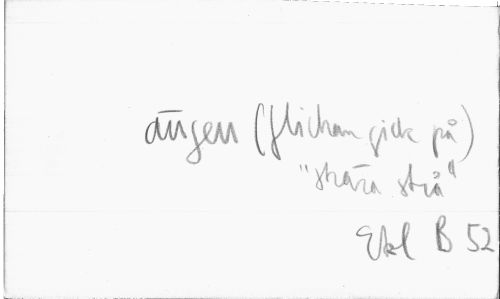 ängen (flickan gick på)
"skära strå"
Ekl B 52